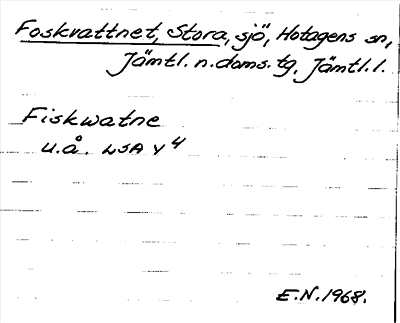 Foskvattnet, Stora, sjö, Hotagens sn,
Jämtl. n. doms. tg, Jämtl. l.
Fiskwatne
u.å. LSA Y4
E.N. 1968.